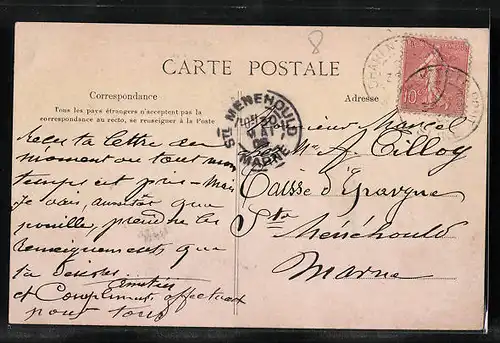 8
CARTE POSTALE
Correspondance
Tous les pays étrangers n'acceptent pas la
correspondance au recto, se renseigner à la Poste
Adresse
Ste MENEHOULD
MARNE
10
Reçu ta lettre au
moment où tout mon
temps est pris — Mais
je vais, aussitôt que
prendre les
renseignements que
tu désires
et Compliments affectueux
pour tous
Monsieur Marcel
Tilloy
Caisse d'Epargne
Ste
Ménéhould
Marne